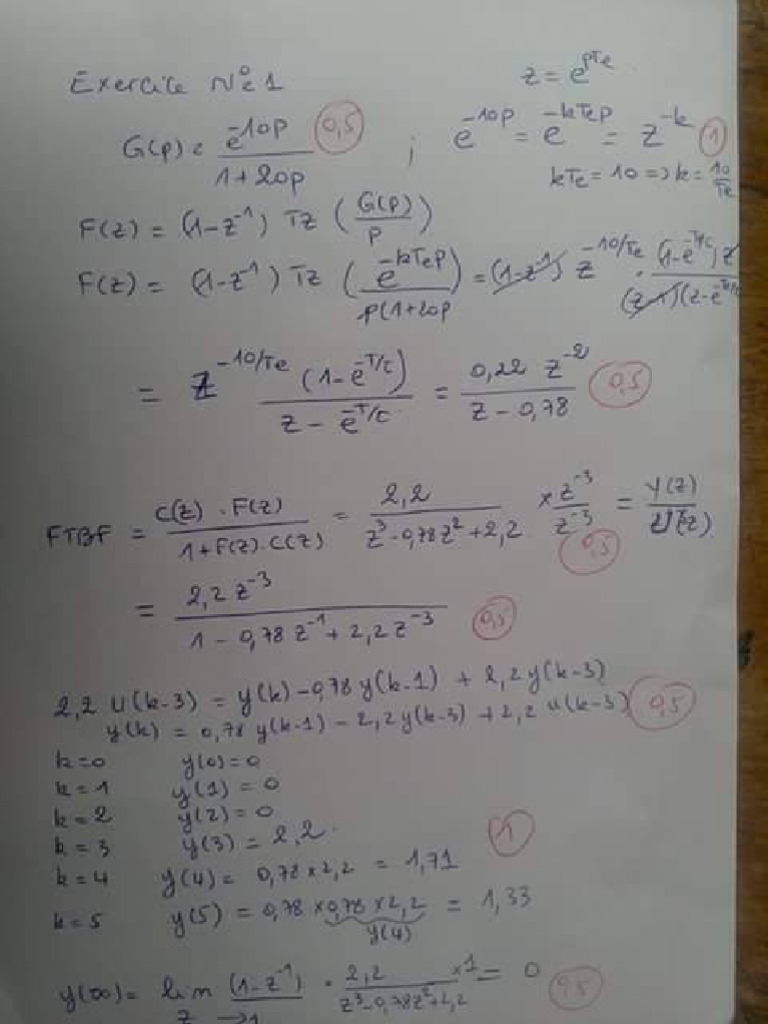 Exercice N° 1 z = e^{pTe}
G(p) = e^{-10p} / (1+20p) (0,5) ; e^{-10p} = e^{-kTep} = z^{-k} (1)
kTe = 10 => k = 10/Te
F(z) = (1-z^{-1}) Tz (G(p)/p)
F(z) = (1-z^{-1}) Tz (e^{-kTep} / p(1+20p) = (1-z^{-1}) z^{-10/Te} . (1-e^{-T/τ}) z / (z-1)(z-e^{-T/τ})
= z^{-10/Te} (1-e^{-T/τ}) / (z - e^{-T/τ}) = 0,22 z^{-2} / (z - 0,78) (0,5)
FTBF = C(z) . F(z) / (1+F(z).C(z)) = 2,2 / (z^3 - 0,78z^2 + 2,2) × z^{-3}/z^{-3} = Y(z)/U(z) (0,5)
= 2,2 z^{-3} / (1 - 0,78 z^{-1} + 2,2 z^{-3}) (0,5)
2,2 u(k-3) = y(k) - 0,78 y(k-1) + 2,2 y(k-3)
y(k) = 0,78 y(k-1) - 2,2 y(k-3) + 2,2 u(k-3) (0,5)
k=0 y(0) = 0
k=1 y(1) = 0
k=2 y(2) = 0
k=3 y(3) = 2,2. (1)
k=4 y(4) = 0,78 × 2,2 = 1,71
k=5 y(5) = 0,78 × 0,78 × 2,2 = 1,33
y(4)
y(∞) = lim (1-z^{-1}) . 2,2 / (z^3 - 0,78z^2 + 2,2) × 1 = 0
z → 1